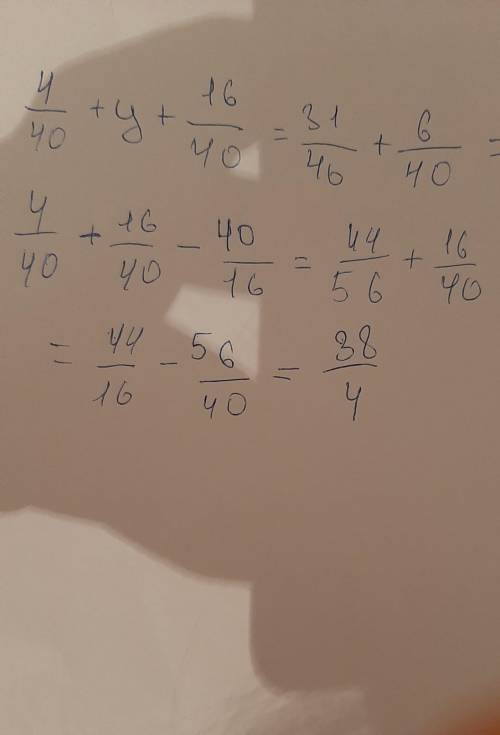 4/40 + y + 16/40 = 31/46 + 6/40 =
4/40 + 16/40 - 40/16 = 44/56 + 16/40
= 44/16 - 56/40 = 38/4